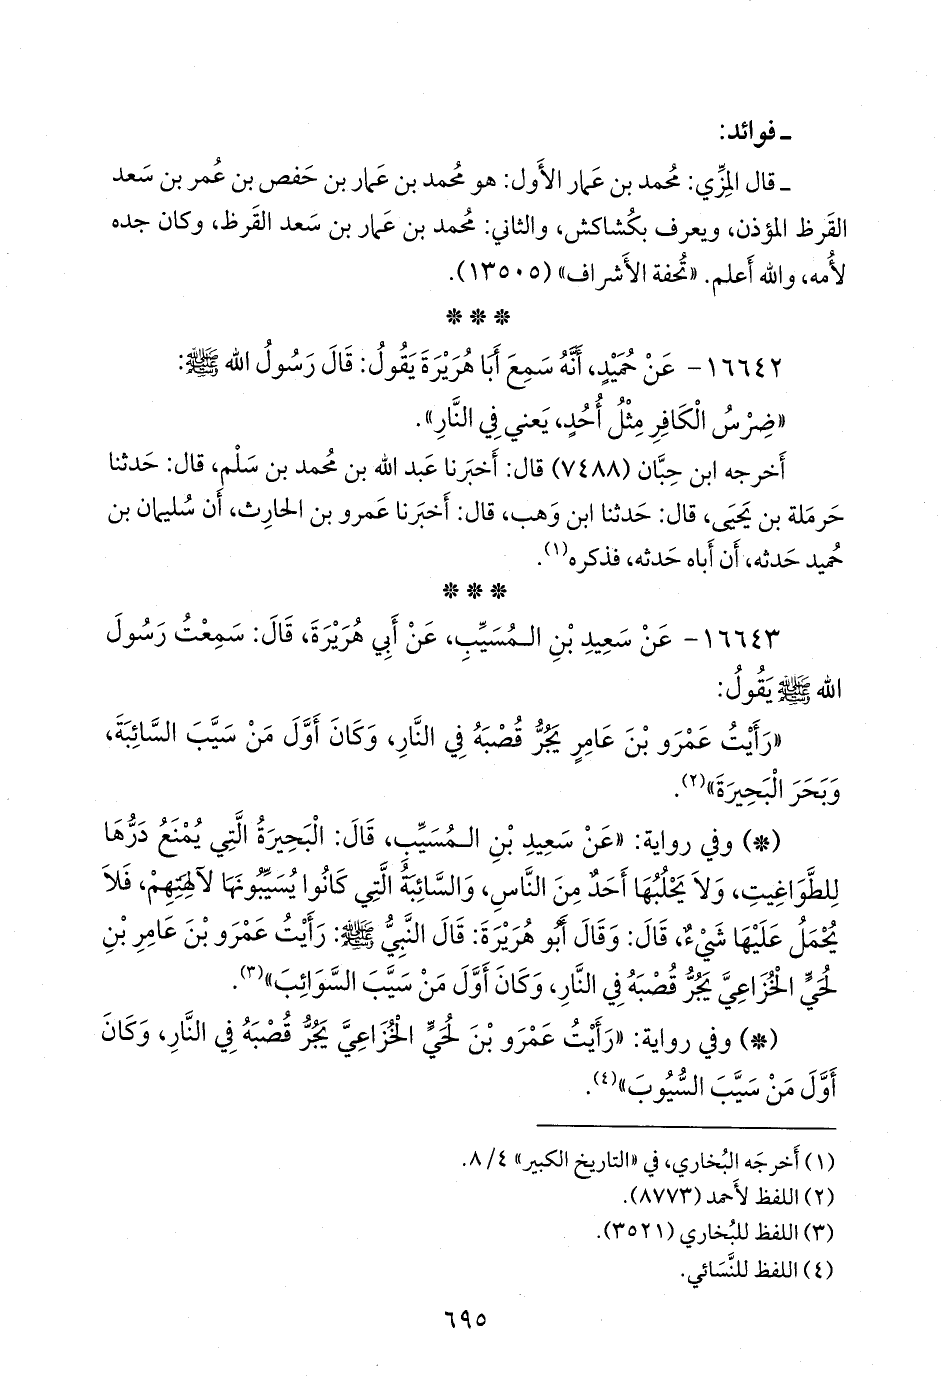 ـ فوائد:
ـ قال المِزِّي: مُحمد بن عَمار الأَول: هو مُحمد بن عَمار بن حَفص بن عُمر بن سَعد
القَرظ المؤذن، ويعرف بكُشاكش، والثاني: مُحمد بن عَمار بن سَعد القَرظ، وكان جده
لأُمه، والله أَعلم. «تُحفة الأَشراف» (١٣٥٠٥).
* * *
١٦٦٤٢- عَنْ حُمَيْدٍ، أَنَّهُ سَمِعَ أَبَا هُرَيْرَةَ يَقُولُ: قَالَ رَسُولُ الله ﷺ:
«ضِرْسُ الْكَافِرِ مِثْلُ أُحُدٍ، يَعني فِي النَّارِ».
أَخرجه ابن حِبَّان (٧٤٨٨) قال: أَخبَرنا عَبد الله بن مُحمد بن سَلْم، قال: حَدثنا
حَرملة بن يَحيَى، قال: حَدثنا ابن وَهب، قال: أَخبَرنا عَمرو بن الحارِث، أَن سُليمان بن
حُميد حَدثه، أَن أَباه حَدثه، فذكره(١).
* * *
١٦٦٤٣- عَنْ سَعِيدِ بْنِ الـمُسَيِّبِ، عَنْ أَبِي هُرَيْرَةَ، قَالَ: سَمِعْتُ رَسُولَ
الله ﷺ يَقُولُ:
«رَأَيْتُ عَمْرَو بْنَ عَامِرٍ يَجُرُّ قُصْبَهُ فِي النَّارِ، وَكَانَ أَوَّلَ مَنْ سَيَّبَ السَّائِبَةَ،
وَبَحَرَ الْبَحِيرَةَ»(٢).
(*) وفي رواية: «عَنْ سَعِيدِ بْنِ الـمُسَيِّبِ، قَالَ: الْبَحِيرَةُ الَّتِي يُمْنَعُ دَرُّهَا
لِلطَّوَاغِيتِ، وَلاَ يَحْلُبُهَا أَحَدٌ مِنَ النَّاسِ، وَالسَّائِبَةُ الَّتِي كَانُوا يُسَيِّبُونَهَا لآلِهَتِهِمْ، فَلاَ
يُحْمَلُ عَلَيْهَا شَيْءٌ، قَالَ: وَقَالَ أَبُو هُرَيْرَةَ: قَالَ النَّبِيُّ ﷺ: رَأَيْتُ عَمْرَو بْنَ عَامِرِ بْنِ
لُحَيٍّ الْخُزَاعِيَّ يَجُرُّ قُصْبَهُ فِي النَّارِ، وَكَانَ أَوَّلَ مَنْ سَيَّبَ السَّوَائِبَ»(٣).
(*) وفي رواية: «رَأَيْتُ عَمْرَو بْنَ لُحَيٍّ الْخُزَاعِيَّ يَجُرُّ قُصْبَهُ فِي النَّارِ، وَكَانَ
أَوَّلَ مَنْ سَيَّبَ السُّيُوبَ»(٤).
(١) أَخرجَه البُخاري، في «التاريخ الكبير» ٤/ ٨.
(٢) اللفظ لأَحمد (٨٧٧٣).
(٣) اللفظ للبُخاري (٣٥٢١).
(٤) اللفظ للنَّسَائي.
٦٩٥